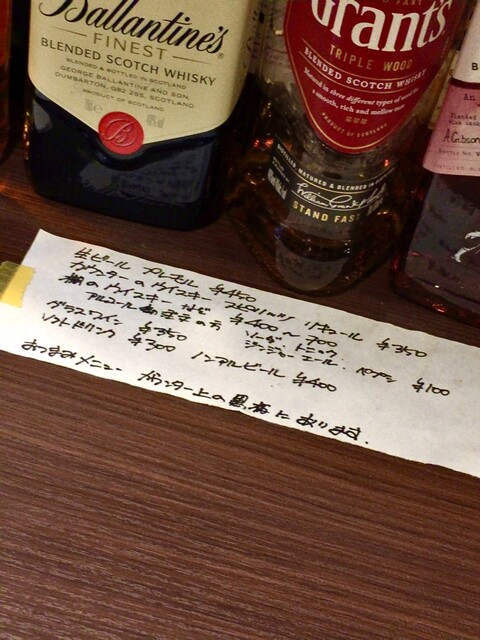 Ballantine's
FINEST
BLENDED SCOTCH WHISKY
BLENDED & BOTTLED IN SCOTLAND
GEORGE BALLANTINE AND SON,
DUMBARTON, G82 2SS, SCOTLAND
PRODUCT OF SCOTLAND
B
Grant's
TRIPLE WOOD
BLENDED SCOTCH WHISKY
Matured in three different types of wood for
a smooth, rich and mellow taste
PRODUCT OF SCOTLAND
MATURED & BLENDED IN
STAND FAST
An
Blended
A.Gibson
生ビール プレモル ¥450
カウンターのウイスキー スピリッツ リキュール ¥350
棚のウイスキーなど ¥400〜700
アルコール類 全ての方 ソーダ、トニック
ジンジャーエール、 ¥100
グラスワイン ¥350
ソフトドリンク ¥300 ノンアルビール ¥400
おつまみメニュー カウンター上の黒板にあります.